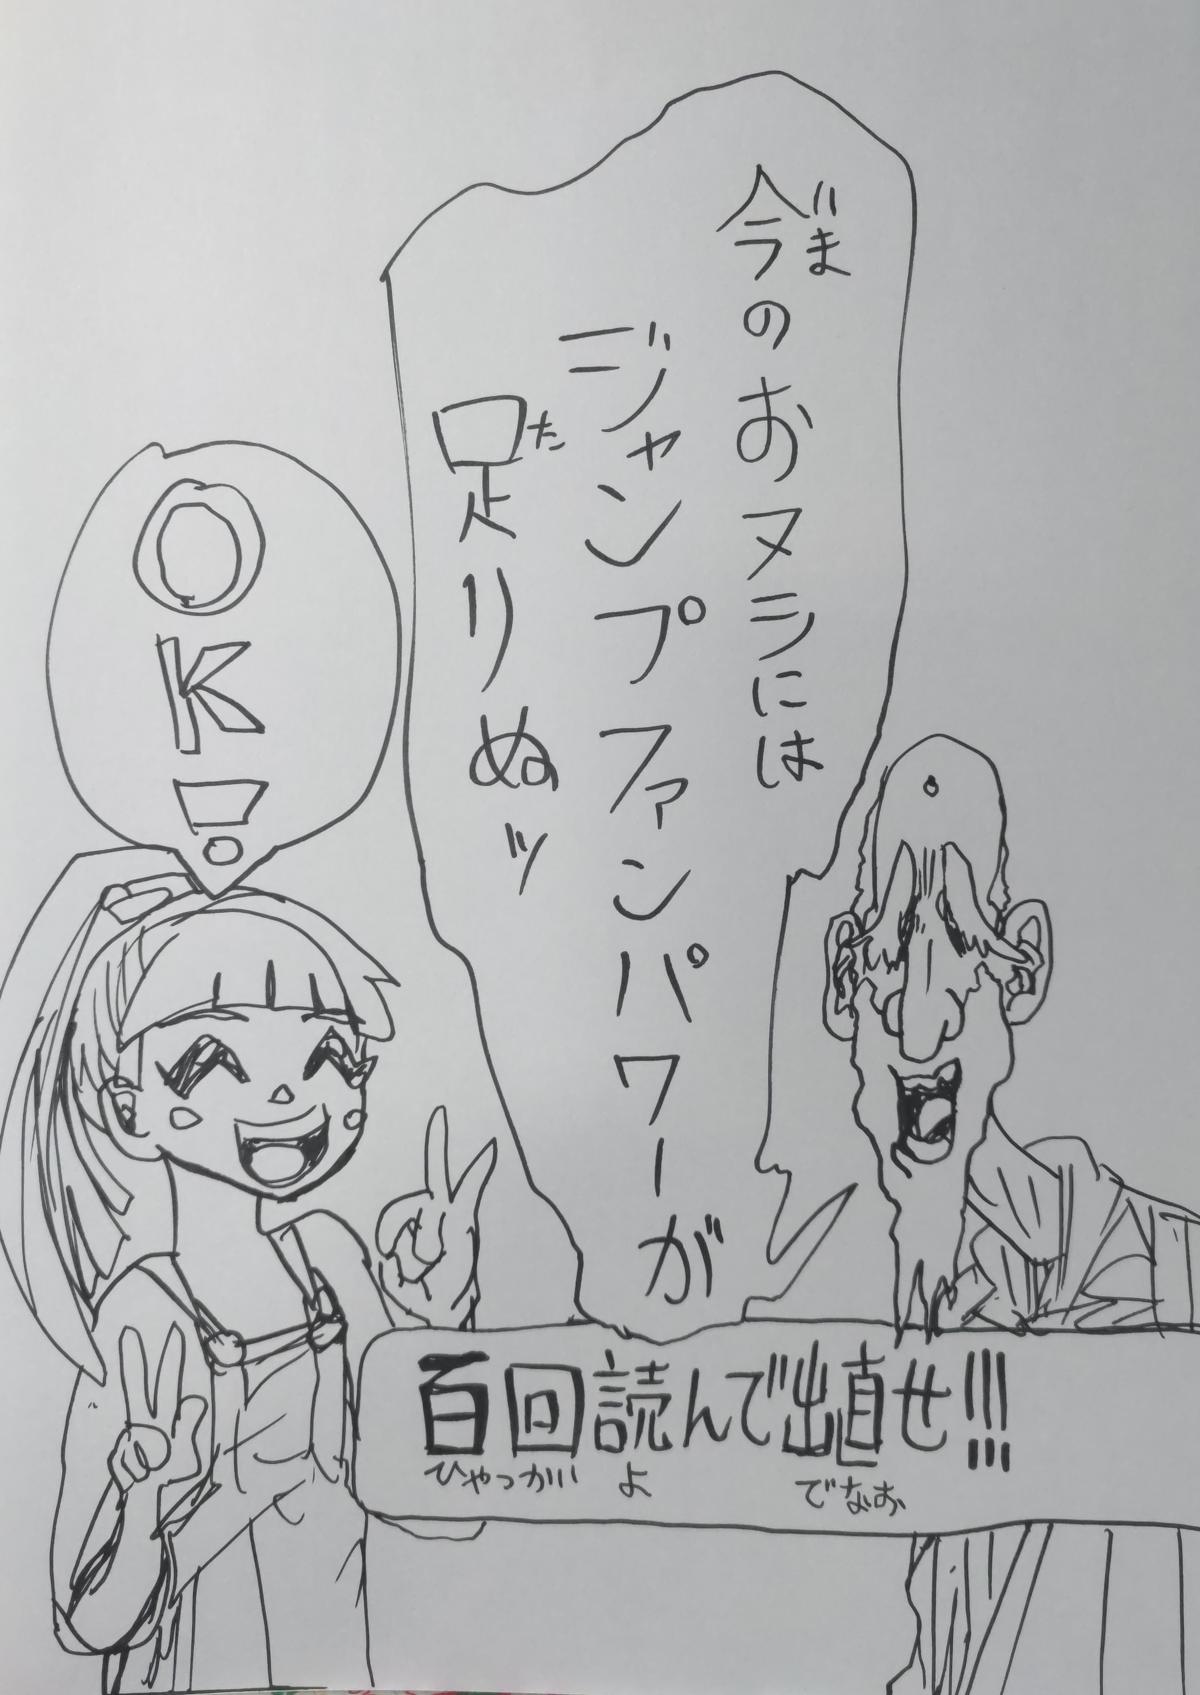 今のおヌシには
いま
ジャンプファンパワーが
足りぬッ
た
百回読んで出直せ!!!
ひゃっかい よ でなお
OK!